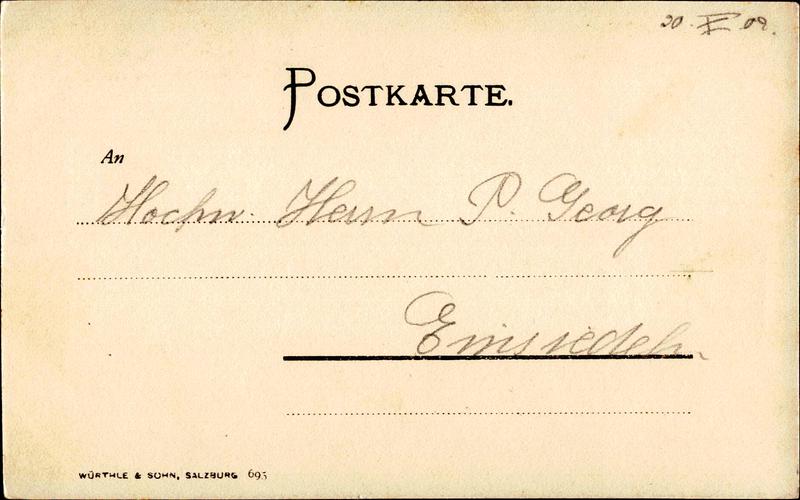 20. X 02.
POSTKARTE.
An
Hochw. Herrn P. Georg
Einsiedeln.
WÜRTHLE & SOHN, SALZBURG 695